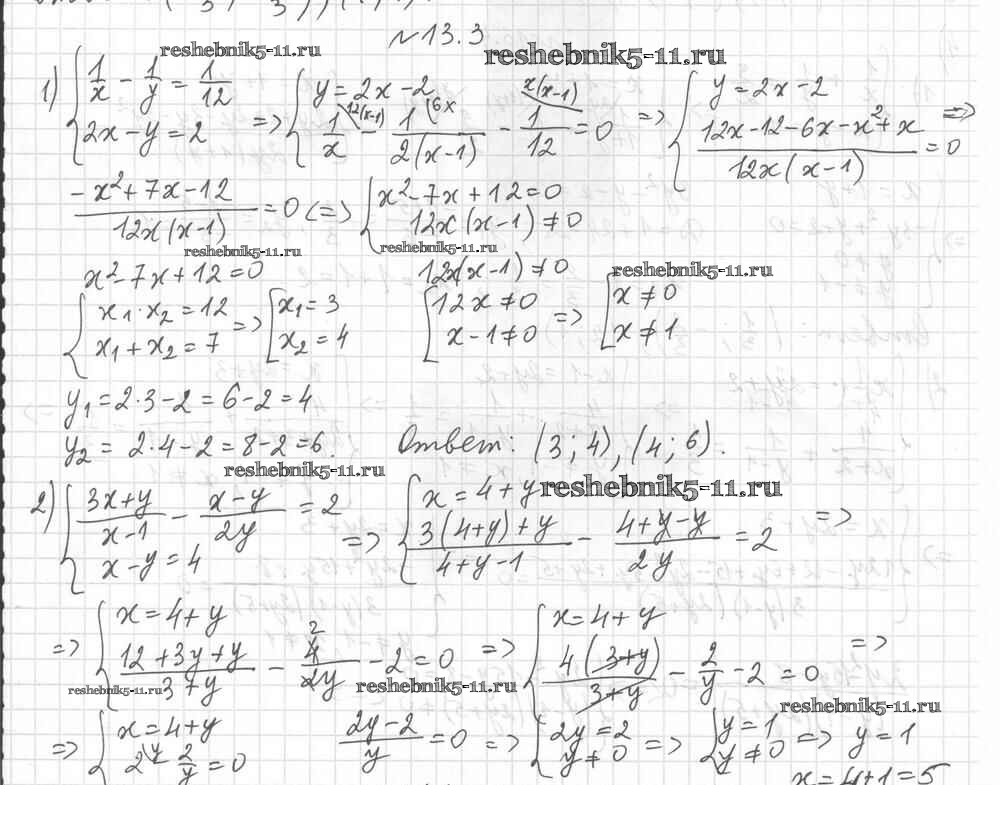 №13.3
reshebnik5-11.ru
reshebnik5-11.ru
1) { 1/x - 1/y = 1/12 ; 2x - y = 2 => { y = 2x - 2 ; 1/x (12(x-1)) - 1/(2(x-1)) (6x) - 1/12 (x(x-1)) = 0 => { y = 2x - 2 ; (12x - 12 - 6x - x² + x)/(12x(x-1)) = 0 =>
(-x² + 7x - 12)/(12x(x-1)) = 0 <=> { x² - 7x + 12 = 0 ; 12x(x-1) ≠ 0
reshebnik5-11.ru
reshebnik5-11.ru
x² - 7x + 12 = 0
12x(x-1) ≠ 0
reshebnik5-11.ru
{ x₁·x₂ = 12 ; x₁ + x₂ = 7 => [ x₁ = 3 ; x₂ = 4
[ 12x ≠ 0 ; x - 1 ≠ 0 => [ x ≠ 0 ; x ≠ 1
y₁ = 2·3 - 2 = 6 - 2 = 4
y₂ = 2·4 - 2 = 8 - 2 = 6. Ответ: (3; 4), (4; 6).
reshebnik5-11.ru
2) { (3x+y)/(x-1) - (x-y)/(2y) = 2 ; x - y = 4 => { x = 4 + y ; (3(4+y)+y)/(4+y-1) - (4+y-y)/(2y) = 2 =>
reshebnik5-11.ru
=> { x = 4 + y ; (12+3y+y)/(3+y) - 4/(2y) (2) - 2 = 0 => { x = 4 + y ; 4(3+y)/(3+y) - 2/y - 2 = 0 =>
reshebnik5-11.ru
reshebnik5-11.ru
reshebnik5-11.ru
=> { x = 4 + y ; 2 (y) - 2/y = 0 (2y-2)/y = 0 => { 2y = 2 ; y ≠ 0 => { y = 1 ; y ≠ 0 => y = 1
x = 4+1 = 5